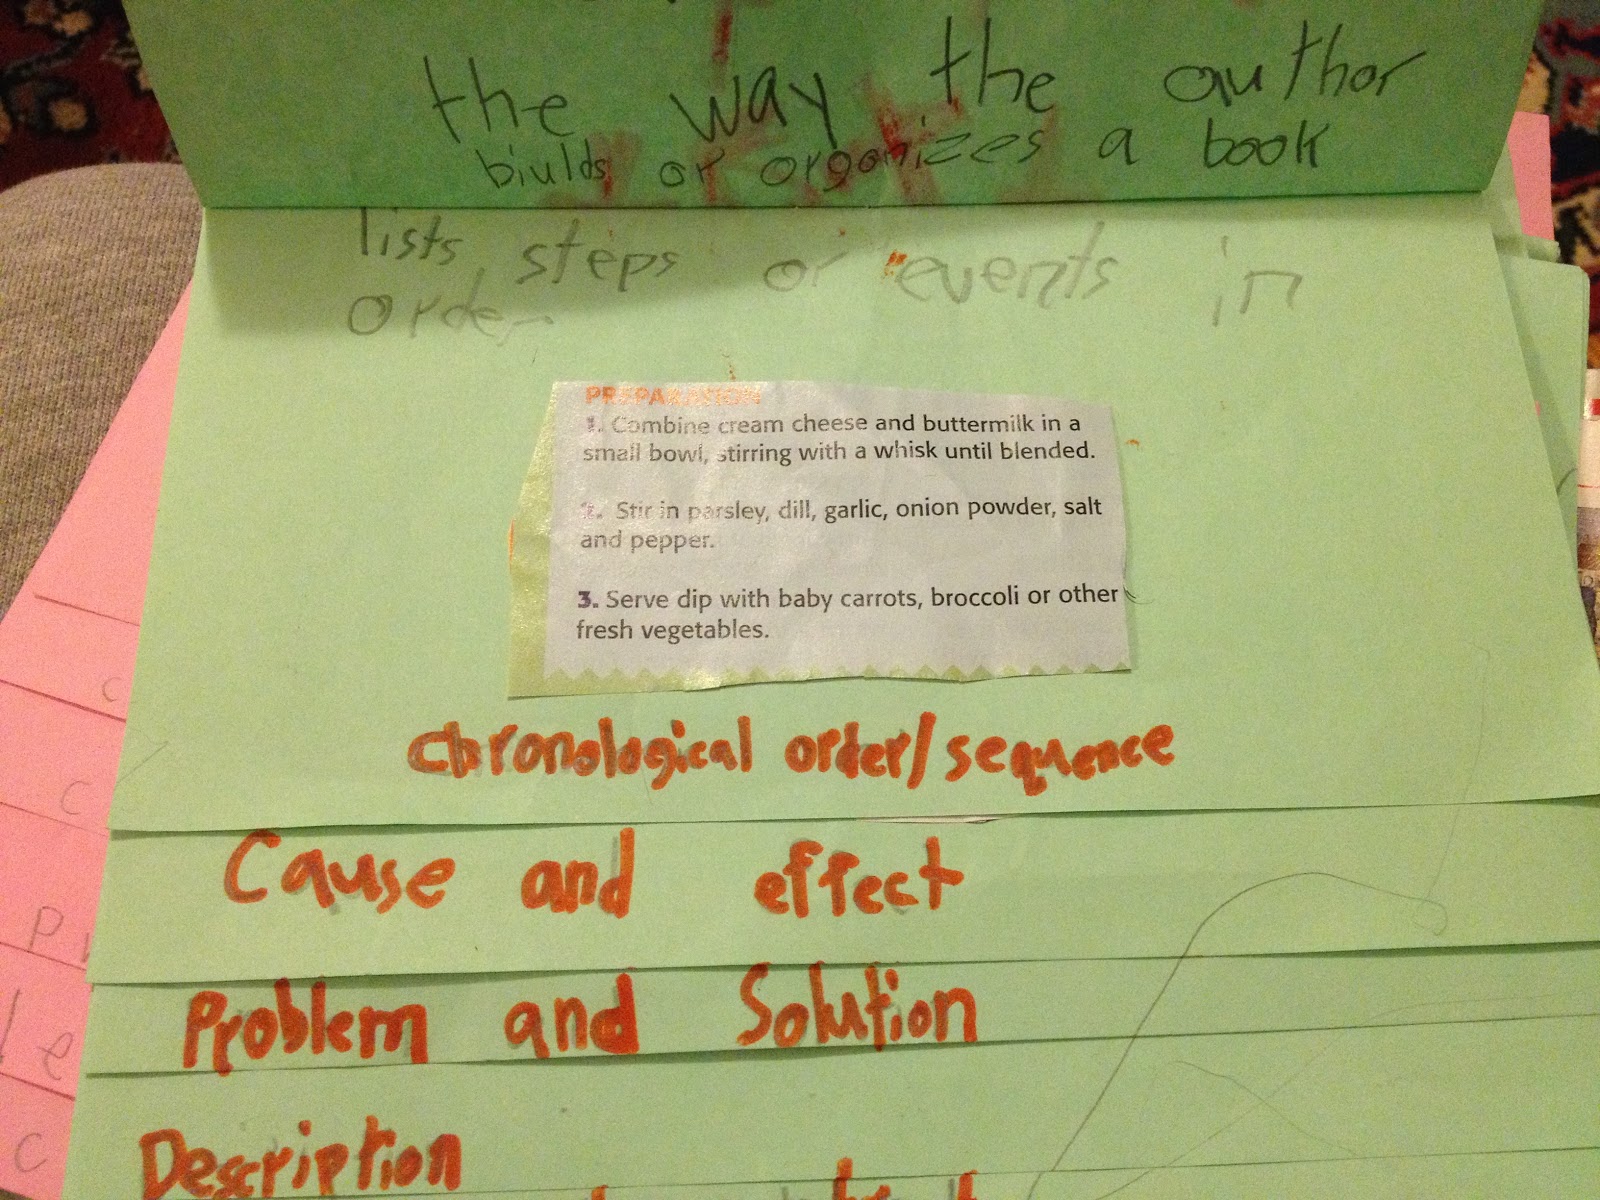 the way the author
biulds or organizes a book
lists, steps or events in
order
PREPARATION
1. Combine cream cheese and buttermilk in a
small bowl, stirring with a whisk until blended.
2. Stir in parsley, dill, garlic, onion powder, salt
and pepper.
3. Serve dip with baby carrots, broccoli or other
fresh vegetables.
chronological order/sequence
Cause and effect
Problem and Solution
Description